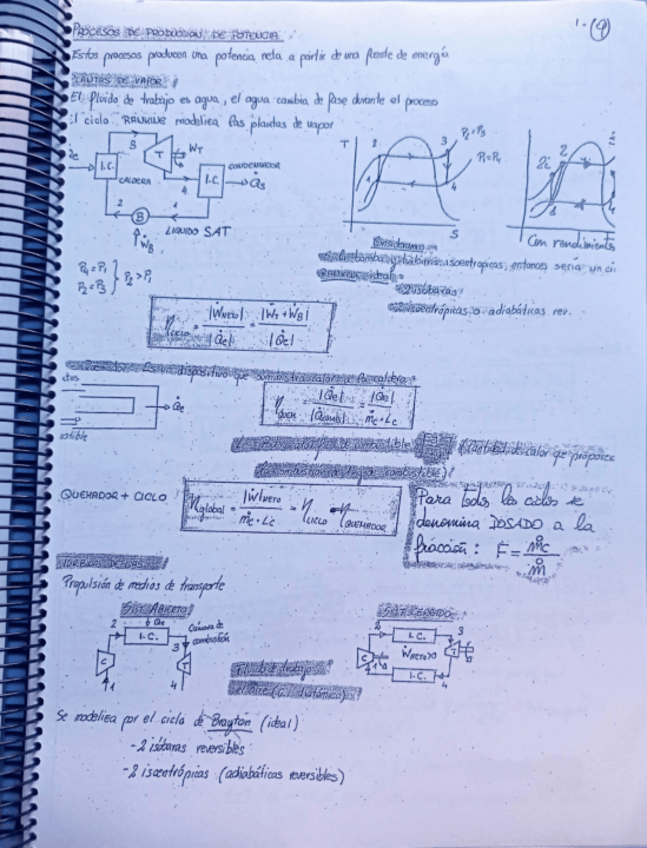 1-(9)
PROCESOS DE PRODUCCIÓN DE POTENCIA
Estos procesos producen una potencia neta a partir de una fuente de energía
DE VAPOR
El fluido de trabajo es agua, el agua cambia de fase durante el proceso
El ciclo RANKINE modeliza las plantas de vapor
3
T
ẆT
I.C.
CALDERA
4
I.C.
CONDENSADOR
Q̇s
2
B
1
LÍQUIDO SAT
ẆB
T
2
3
P2=P3
P1=P4
1
4
S
2i
2
1
Con rendimiento
Consideramos
la bomba y turbina isoentropicas, entonces sería un ci
ideal:
- 2 isóbaras
- 2 isoentrópicas o adiabáticas rev.
P4 = P1
P2 = P3 } P2 > P1
ηciclo = |ẆNETO| / |Q̇e| = |ẆT + ẆB| / |Q̇e|
Quemador: Es un dispositivo que suministra calor a la caldera
Q̇e
ustible
ηQUEM = |Q̇e| / |Q̇comb| = |Q̇e| / ṁc · Lc
(Cantidad de calor que proporc
combustible)
QUEMADOR + CICLO
ηglobal = |Ẇ|NETO / ṁc · Lc = ηCICLO · ηQUEMADOR
Para todos los ciclos se
denomina DOSADO a la
fracción: F = ṁc / ṁ
Propulsión de medios de transporte
SIST. ABIERTO
SIST. CERRADO
2
Qe
I.C.
Cámara de
combustión
3
C
T
1
4
2
I.C.
3
C
ẆNETO
T
1
I.C.
4
Fluido de trabajo
el aire (G.I. diatómico)
Se modeliza por el ciclo de Brayton (ideal)
- 2 isóbaras reversibles
- 2 isoentrópicas (adiabáticas reversibles)